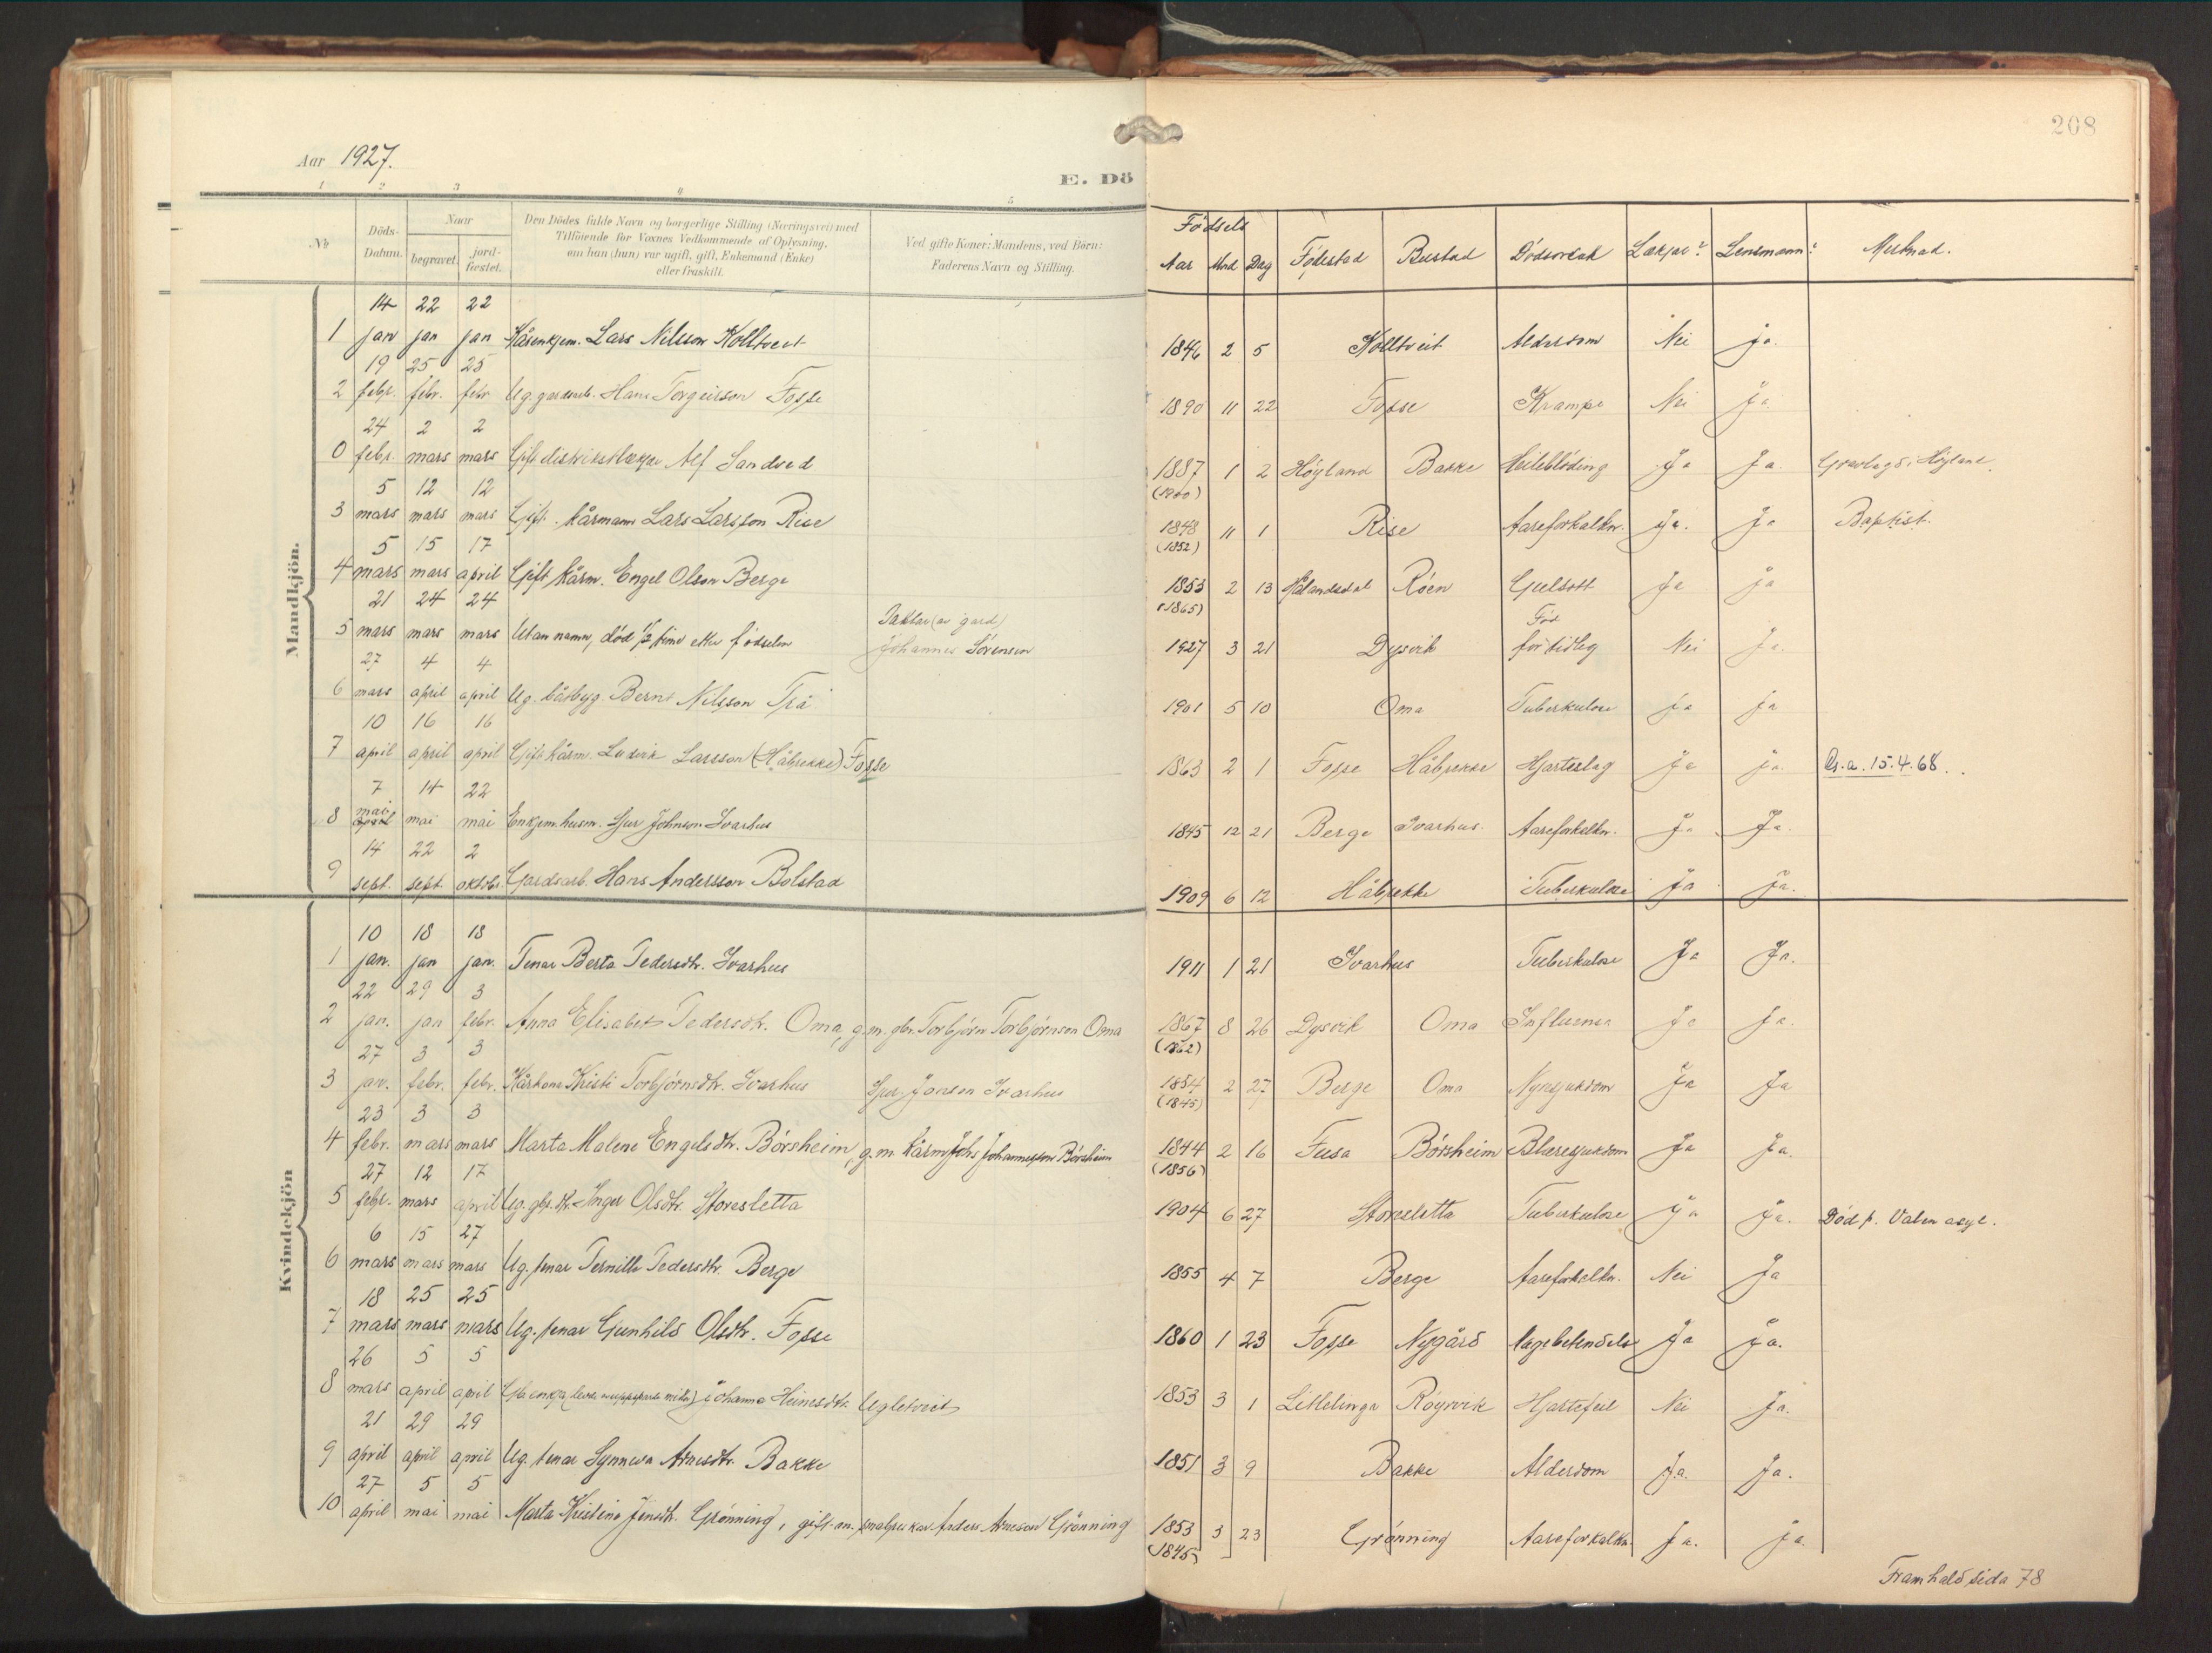 208
Aar 1927.
E. Dö
1 2 3 4 5
No
Döds-Datum.
Naar
begravet.
jord-fæstet.
Den Dödes fulde Navn og borgerlige Stilling (Næringsvei) med
Tilföiende for Voxnes Vedkommende af Oplysning,
om han (hun) var ugift, gift, Enkemand (Enke)
eller fraskilt.
Ved gifte Koner: Mandens, ved Børn:
Faderens Navn og Stilling.
Fødsels
Aar Mnd Dag Fødestad Bustad Dødsorsak Lækjar? Lensmann? Merknad.
Mandkjön.
14 22 22
1 jan jan jan Kårenkjem. Lars Nilsson Kolltveit 1846 2 5 Kolltveit Alderdom Nei ja.
19 25 25
2 febr. febr. febr Ug. gardsarb. Hans Torgeirson Fosse 1890 11 22 Fosse Krampe Nei Ja
24 2 2
0 febr. mars mars Gift distriktslækjar Alf Sandved 1887 1 2 Høyland Bakke Heilebløding Ja Ja. Gravlagd i Høyland.
(1900)
5 12 12
3 mars mars mars Gift. kårmann Lars Larsson Rise 1848 11 1 Rise Aareforkalkn. Ja. Ja Baptist.
(1852)
5 15 17
4 mars mars april Gift kårm. Engel Olson Berge 1853 2 13 Hålandsdal Røen Gulsott Ja ja
(1865)
21 24 24
5 mars mars mars Utan namn, død 1/2 time etter fødselen (av gard) Johannes Sørensen 1927 3 21 Dysvik Fød for tidleg Nei Ja.
27 4 4
6 mars april april Ug. båtbyg. Bernt Nilsson Trå 1901 5 10 Oma Tuberkulose ja ja
10 16 16
7 april april april Gift kårm. Ludvik Larsson (Håbrekke) Fosse 1863 2 1 Fosse Håbrekke Hjarteslag Ja ja. 15.4.68.
7 14 22
8 mai april mai mai Enkjem. husm. Sjur Johnson Ivarhus 1845 12 21 Berge Ivarhus. Aareforkalkn. Ja Ja.
14 22 2
9 sept. sept. oktbr. Gardsarb. Hans Andersson Bolstad 1909 6 12 Håbrekke Tuberkulose Ja Ja.
Kvindekjön
10 18 18
1 jan. jan jan. Tenar Berta Pedersdtr. Ivarhus 1911 1 21 Ivarhus Tuberkulose Ja Ja.
22 29 3
2 jan. jan febr. Anna Elisabet Pedersdtr. Oma, g.m. gbr. Torbjørn Torbjørnson Oma 1867 8 26 Dysvik Oma Influensa Ja Ja.
(1862)
27 3 3
3 jan. febr. febr. Kårkona Kristi Torbjørnsdtr. Ivarhus Sjur Jonson Ivarhus 1854 2 27 Berge Oma Nyresjukdom Ja Ja
(1845)
23 3 3
4 febr. mars mars Marta Malene Engelsdtr. Børsheim, g.m. kårm. Johs Johannesson Børsheim 1844 2 16 Fusa Børsheim Blæresjukdom Ja Ja.
(1856)
27 12 17
5 febr. mars april Ug. gbr. dt. Inger Olsdtr. Storesletta 1904 6 27 Storesletta Tuberkulose Ja Ja. Død p. Valen asyl.
6 15 27
6 mars mars mars Ug. tenar Pernille Pedersdtr. Berge 1855 4 7 Berge Aareforkalkn. Nei Ja
18 25 25
7 mars mars mars Ug. tenar Gunhild Olsdtr. Fosse 1860 1 23 Fosse Nygård Lngebetendelse Ja Ja.
26 5 5
8 mars april april Johanna Heinesdtr. Ugletveit 1853 3 1 Litlelinga Røyrvik Hjartefeil Nei Ja.
21 29 29
9 april april april Ug. tenar Synneva Arnesdtr. Bakke 1851 3 9 Bakke Alderdom Ja. Ja.
27 5 5
10 april mai mai Marta Kristina Jensdtr. Grønning, gift m. smabrukar Anders Arneson Grønning 1853 3 23 Grønning Aareforkalkn. Ja. ja.
(1845)
Framhald sida 78